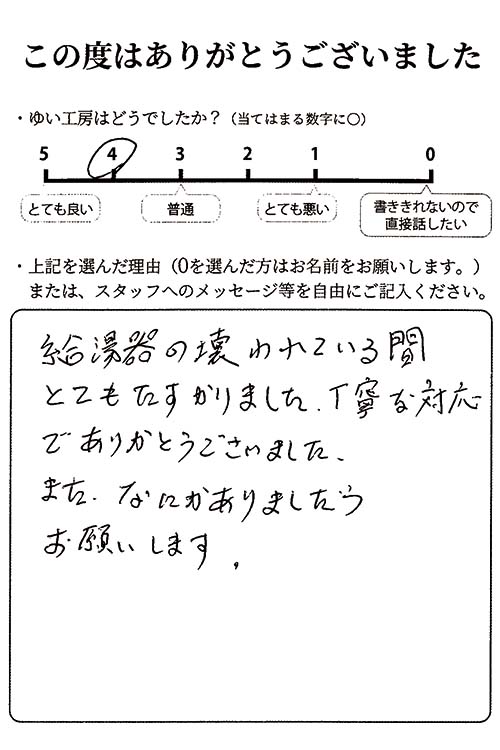 この度はありがとうございました
・ゆい工房はどうでしたか？（当てはまる数字に○）
5 4 3 2 1 0
とても良い 普通 とても悪い 書ききれないので直接話したい
・上記を選んだ理由（0を選んだ方はお名前をお願いします。）
または、スタッフへのメッセージ等を自由にご記入ください。
給湯器の壊われている間
とてもたすかりました、丁寧な対応
でありがとうございました、
また、なにかありましたら
お願いします。